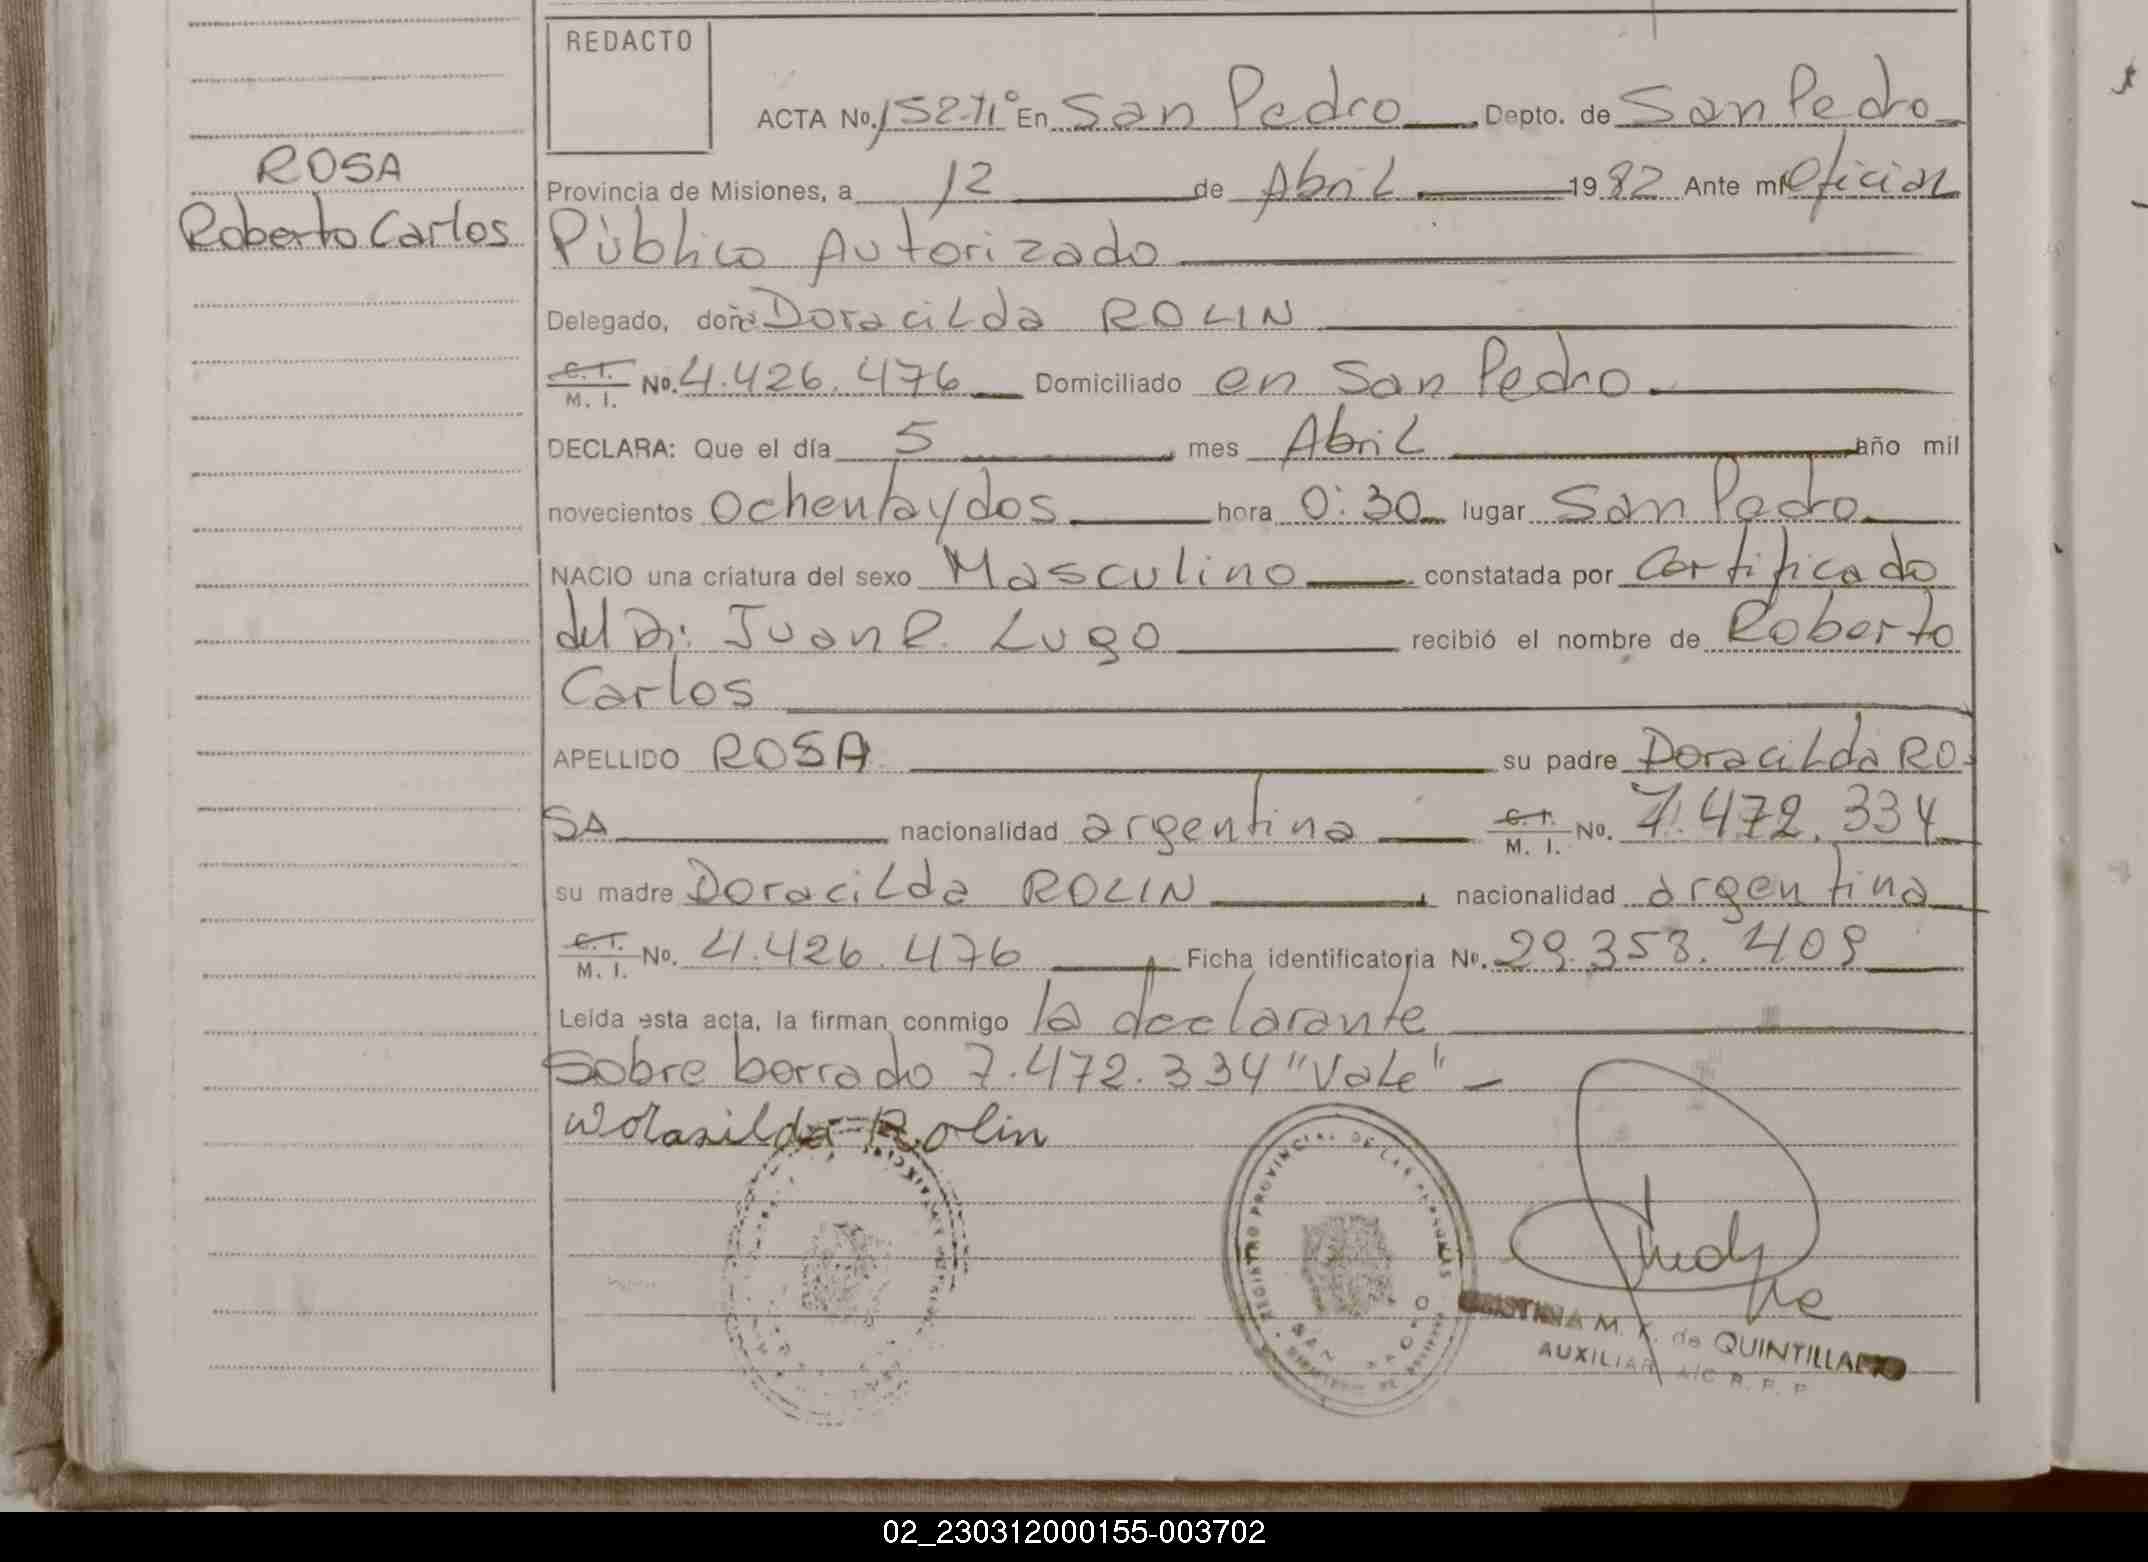 REDACTO
ACTA No. 152-71° En San Pedro Depto. de San Pedro
ROSA
Roberto Carlos
Provincia de Misiones, a 12 de Abril 1982 Ante mi Oficial
Público Autorizado
Delegado, doña Doracilda ROLIN
C. I. M. I. No. 4.426.476 Domiciliado en San Pedro
DECLARA: Que el día 5 mes Abril año mil
novecientos Ochentaydos hora 0:30 lugar San Pedro
NACIO una criatura del sexo Masculino constatada por Certificado
del Dr: Juan R. Lugo recibió el nombre de Roberto
Carlos
APELLIDO ROSA su padre Doracilda RO-
SA nacionalidad argentina C. I. M. I. No. 7.472.334
su madre Doracilda ROLIN nacionalidad argentina
C. I. M. I. No. 4.426.476 Ficha identificatoria No. 29.358.409
Leida esta acta, la firman conmigo la declarante
Sobre borrado 7.472.334 "Vale" -
Worasilda Rolin
REGISTRO PROVINCIAL DE LAS PERSONAS
SAN PEDRO
CRISTINA M. K. de QUINTILLA
AUXILIAR A/C R. P. P
02_230312000155-003702